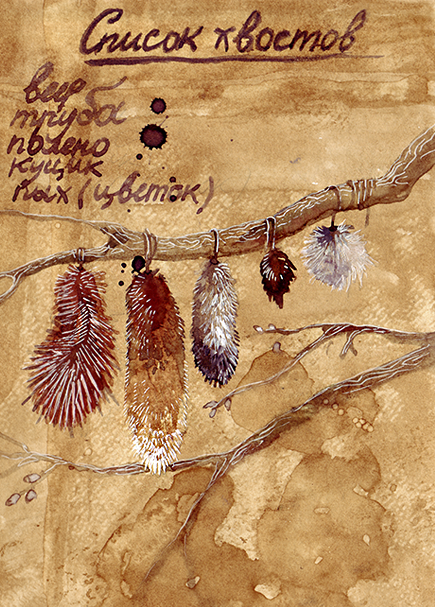 Список хвостов
веер
труба
полено
кущик
пых (цветок)